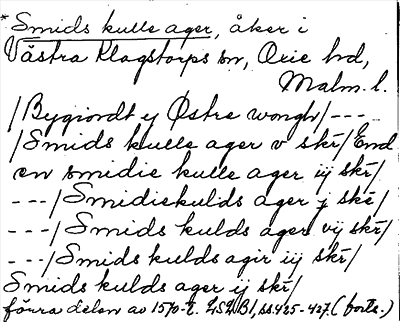 *Smids kulle ager, åker i
Västra Klagstorps sn, Oxie hd,
Malm. l.
/Bygiordt ij Østre wongh/ ---
/Smids kulle ager v skr̄/ End
en smidie kulle ager iij skr̄/
---/Smidiekulds ager j skr̄/
---/Smids kulds ager vij skr̄/
---/Smids kulds agir iij skr̄/
Smids kulds ager ij skr̄/
förra delen av 1570-t. LSLB1, ss. 425-427. (forts.)